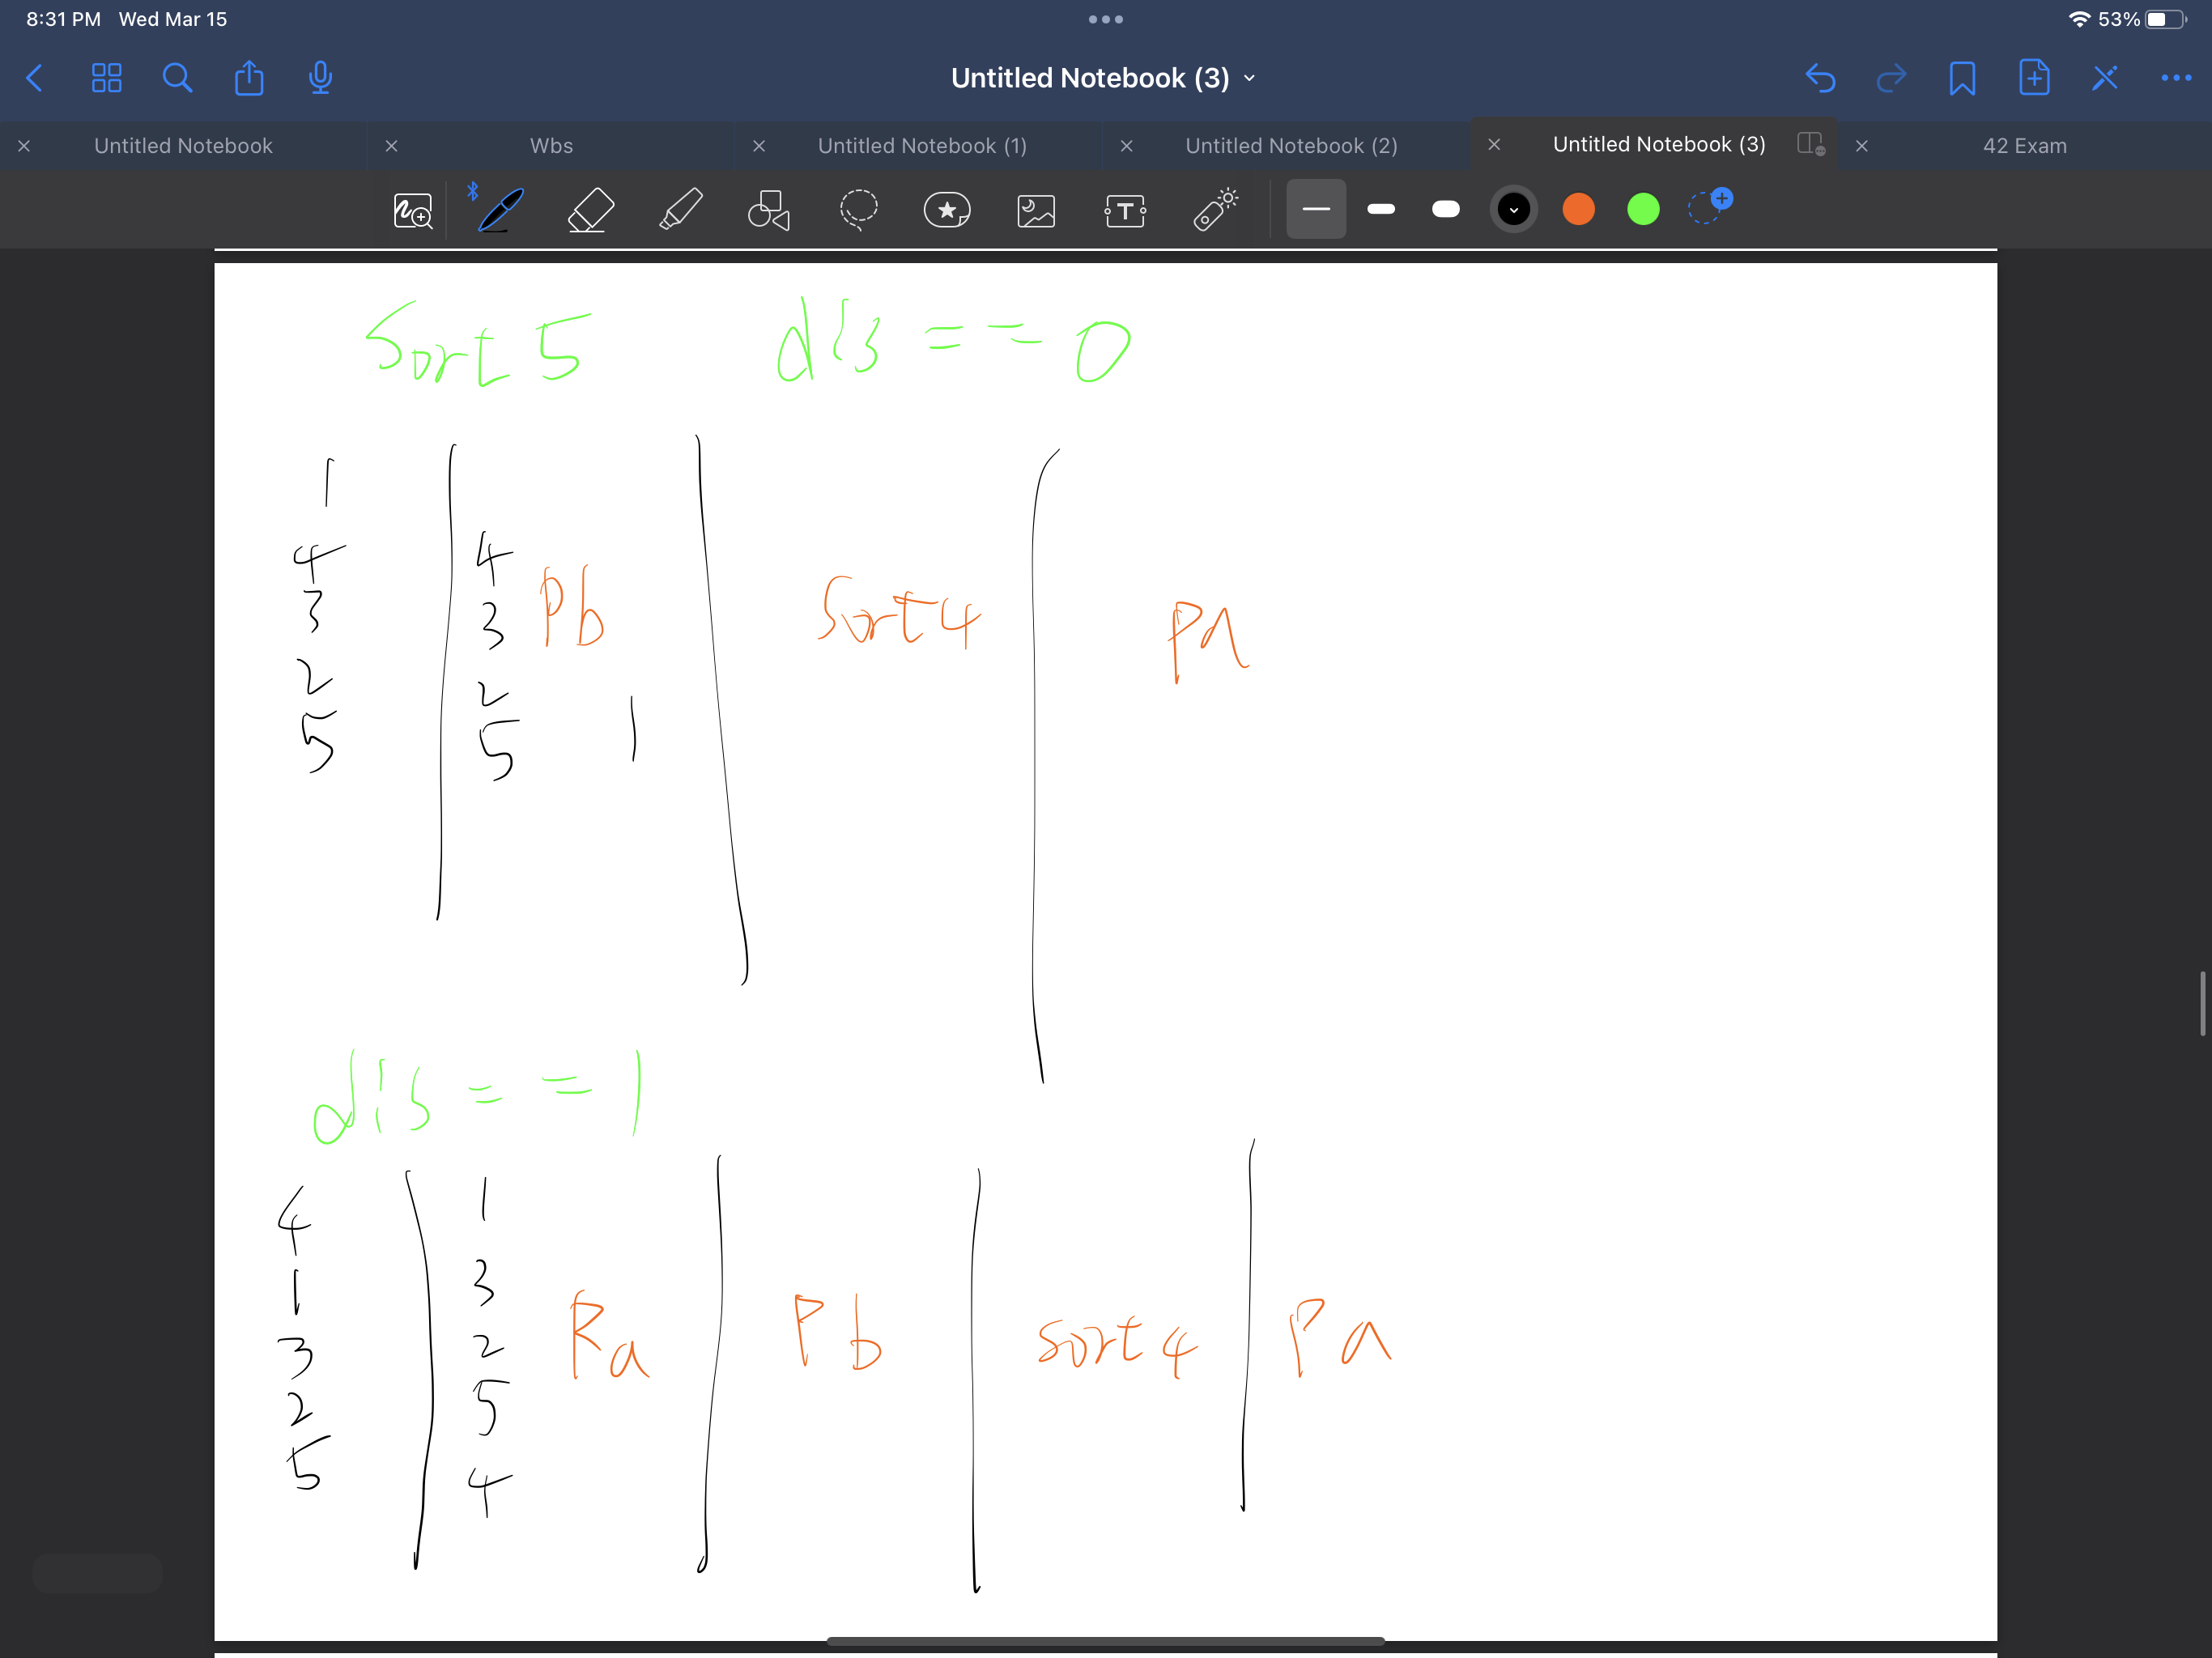 8:31 PM Wed Mar 15
53%
Untitled Notebook (3)
Untitled Notebook
Wbs
Untitled Notebook (1)
Untitled Notebook (2)
Untitled Notebook (3)
42 Exam
T
Sort 5 dis == 0
1
4 4
3 3 Pb Sort4 PA
2 2
5 5 1
dis == 1
4 1
1 3
3 2 Ra Pb sort4 Pa
2 5
5 4